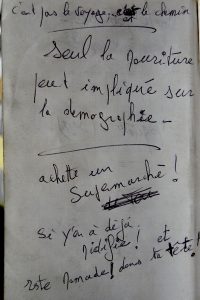 c'est pas le voyage, c'est le chemin
seul la nouriture
peut impliqué sur
la démographie _
achette un
Supermarché !
Si y'en a déjà
Nidifie ! et
reste Nomade ! dans ta tête !